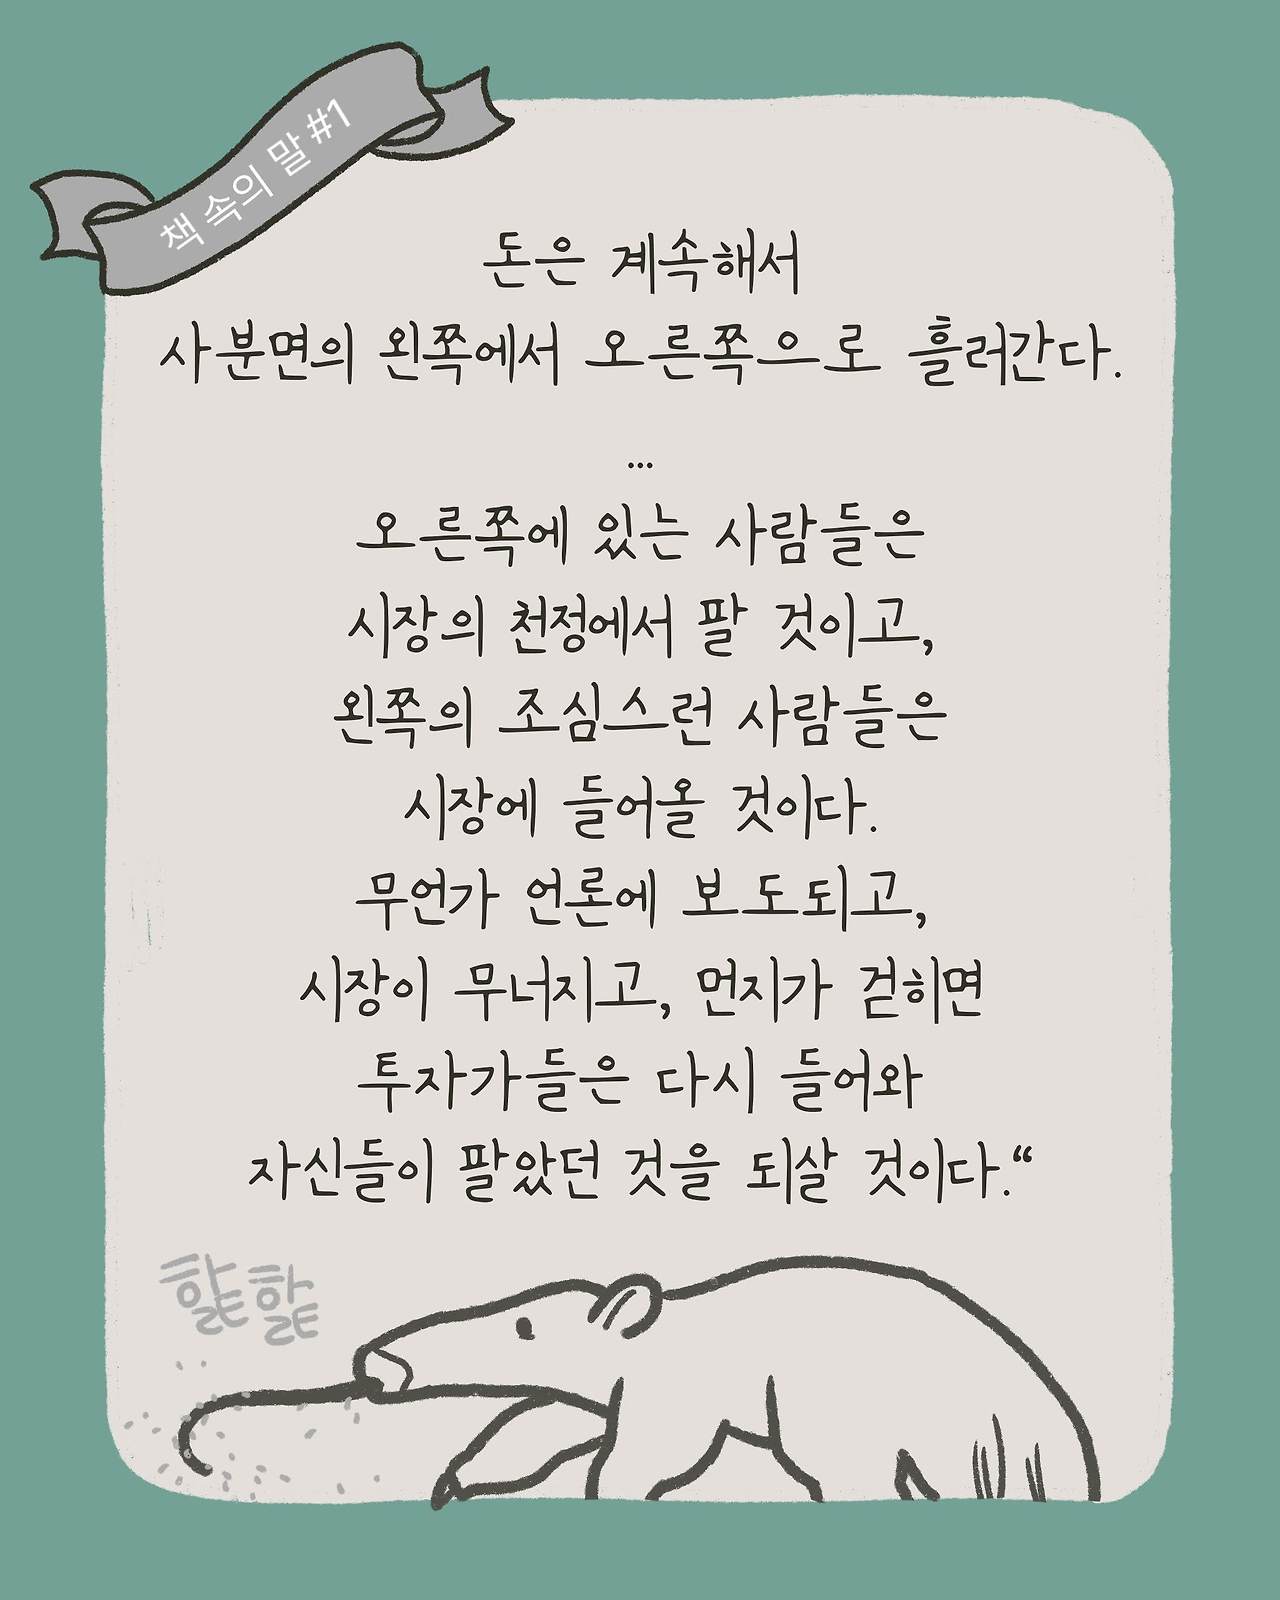 책 속의 말 #1
돈은 계속해서
사분면의 왼쪽에서 오른쪽으로 흘러간다.
...
오른쪽에 있는 사람들은
시장의 천정에서 팔 것이고,
왼쪽의 조심스런 사람들은
시장에 들어올 것이다.
무언가 언론에 보도되고,
시장이 무너지고, 먼지가 걷히면
투자가들은 다시 들어와
자신들이 팔았던 것을 되살 것이다.“
핥핥